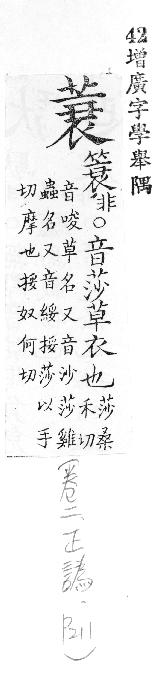 42增廣字學舉隅
蓑
簑非○音莎草衣也
莎桑
禾切
音唆草名又音沙莎雞
蟲名又音綏挼莎以手
切摩也挼奴何切
(卷二正譌